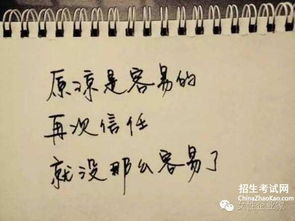 原凉是容易的
再次信任
就没那么容易了
招生考试网
ChinaZhaoKao.com